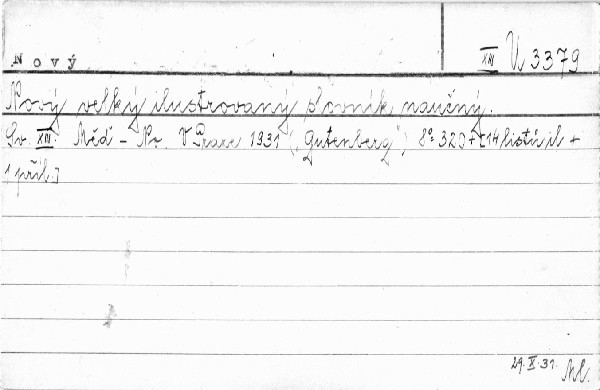 Nový
XIII U 3379
Nový velký ilustrovaný slovník naučný.
Sv. XIII. Měď – No. V Praze 1931 („Gutenberg“) 8° 320 + [14 listů il +
1 příl.]
29. X. 31.